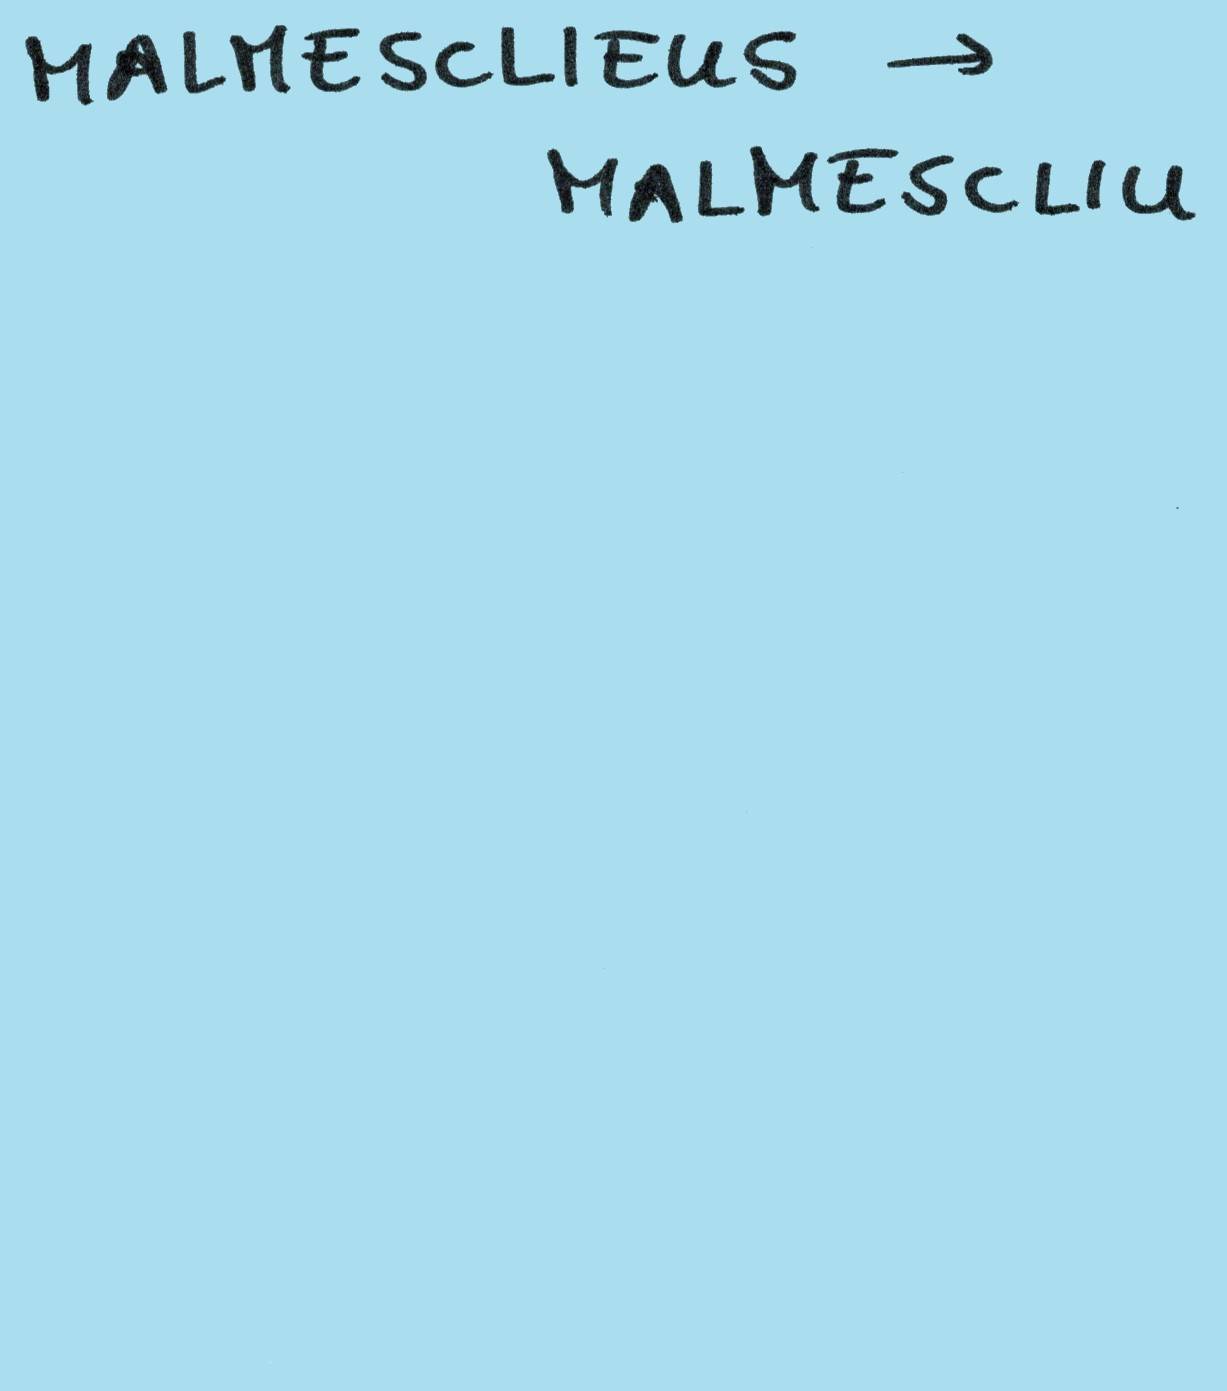 MALMESCLIEUS →
MALMESCLIU